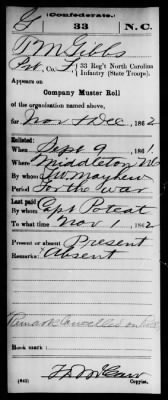 (Confederate.)
G 33 N.C.
T M Gibbs
Pvt, Co. F, 33 Reg't North Carolina
Infantry (State Troops).
Appears on
Company Muster Roll
of the organization named above,
for Nov & Dec, 1862
Enlisted:
When Sept 9, 1861
Where Middleton NC
By whom
Period For the war
Last paid:
By whom Capt Poteat
To what time Nov 1, 1862
Present or absent Present
Remarks: Absent
Remark cancelled on
Book mark:
(642) Copyist.